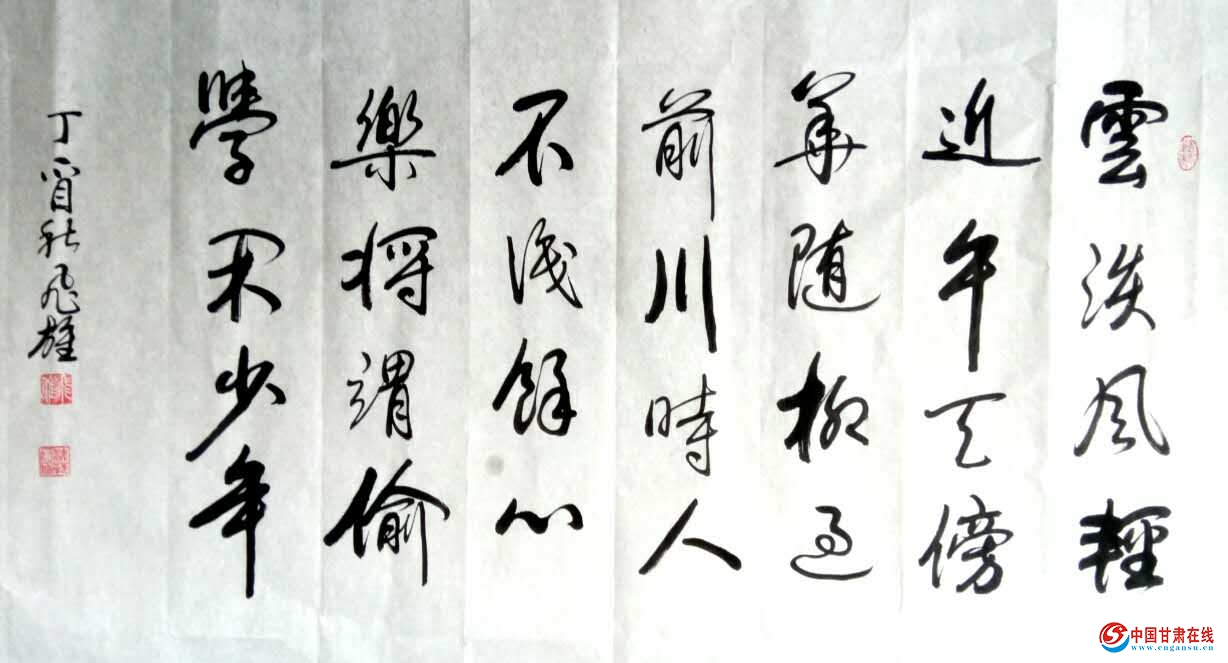 雲淡風輕
近午天傍
華随柳過
前川時人
不識餘心
樂將謂偷
學閑少年
丁酉秋飛雄
中国甘肃在线
www.cngansu.cn